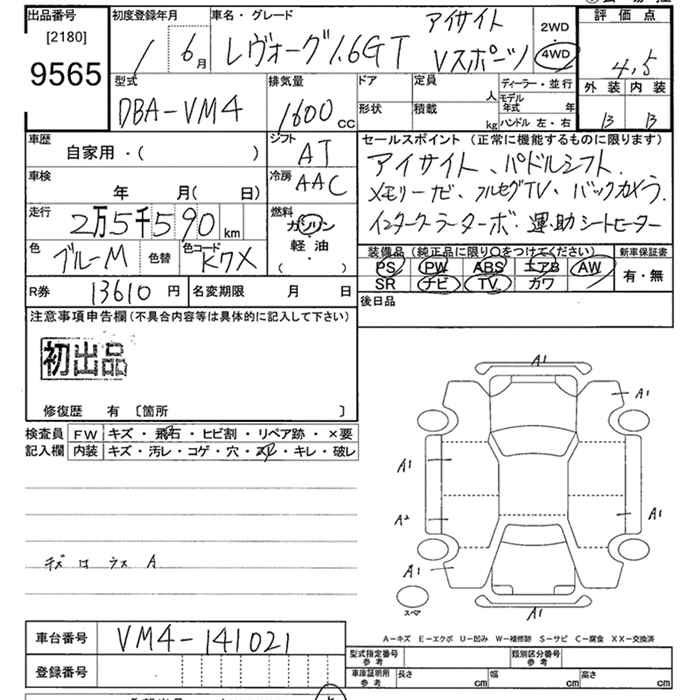 出品番号 初度登録年月 車名・グレード 評価点
[2180] アイサイト 2WD
9565 1 6月 レヴォーグ1.6GT Vスポーツ 4WD 4.5
型式 排気量 ドア 定員 人 ディーラー・並行 外装 内装
DBA-VM4 1600cc 形状 積載 kg モデル年式 年 B B
ハンドル 左・右
車歴 シフト セールスポイント (正常に機能するものに限ります)
自家用・( ) AT アイサイト、パドルシフト.
車検 冷房 メモリーナビ、フルセグTV、バックカメラ.
年 月( 日) AAC インタークーラーターボ・運.助シートヒーター
走行 燃料
2万5千590km ガソリン
軽油
( )
色 ブルーM 色替 色コード K7X 装備品 (純正品に限り○をつけてください) 新車保証書
PS PW ABS エアB AW 有・無
R券 13610円 名変期限 月 日 SR ナビ TV カワ
注意事項申告欄 (不具合内容等は具体的に記入して下さい) 後日品
初出品
修復歴 有 [箇所 ]
検査員 FW キズ・飛石・ヒビ割・リペア跡・×要
記入欄 内装 キズ・汚レ・コゲ・穴・スレ・キレ・破レ
A1
A1
A1
A2 A1
A1
A1
スペア
A-キズ E-エクボ U-凹み W-補修跡 S-サビ C-腐食 XX-交換済
車台番号 VM4-141021
型式指定番号 参考 類別区分番号 参考
登録番号 車庫証明用 参考 長さ cm 幅 cm 高さ cm